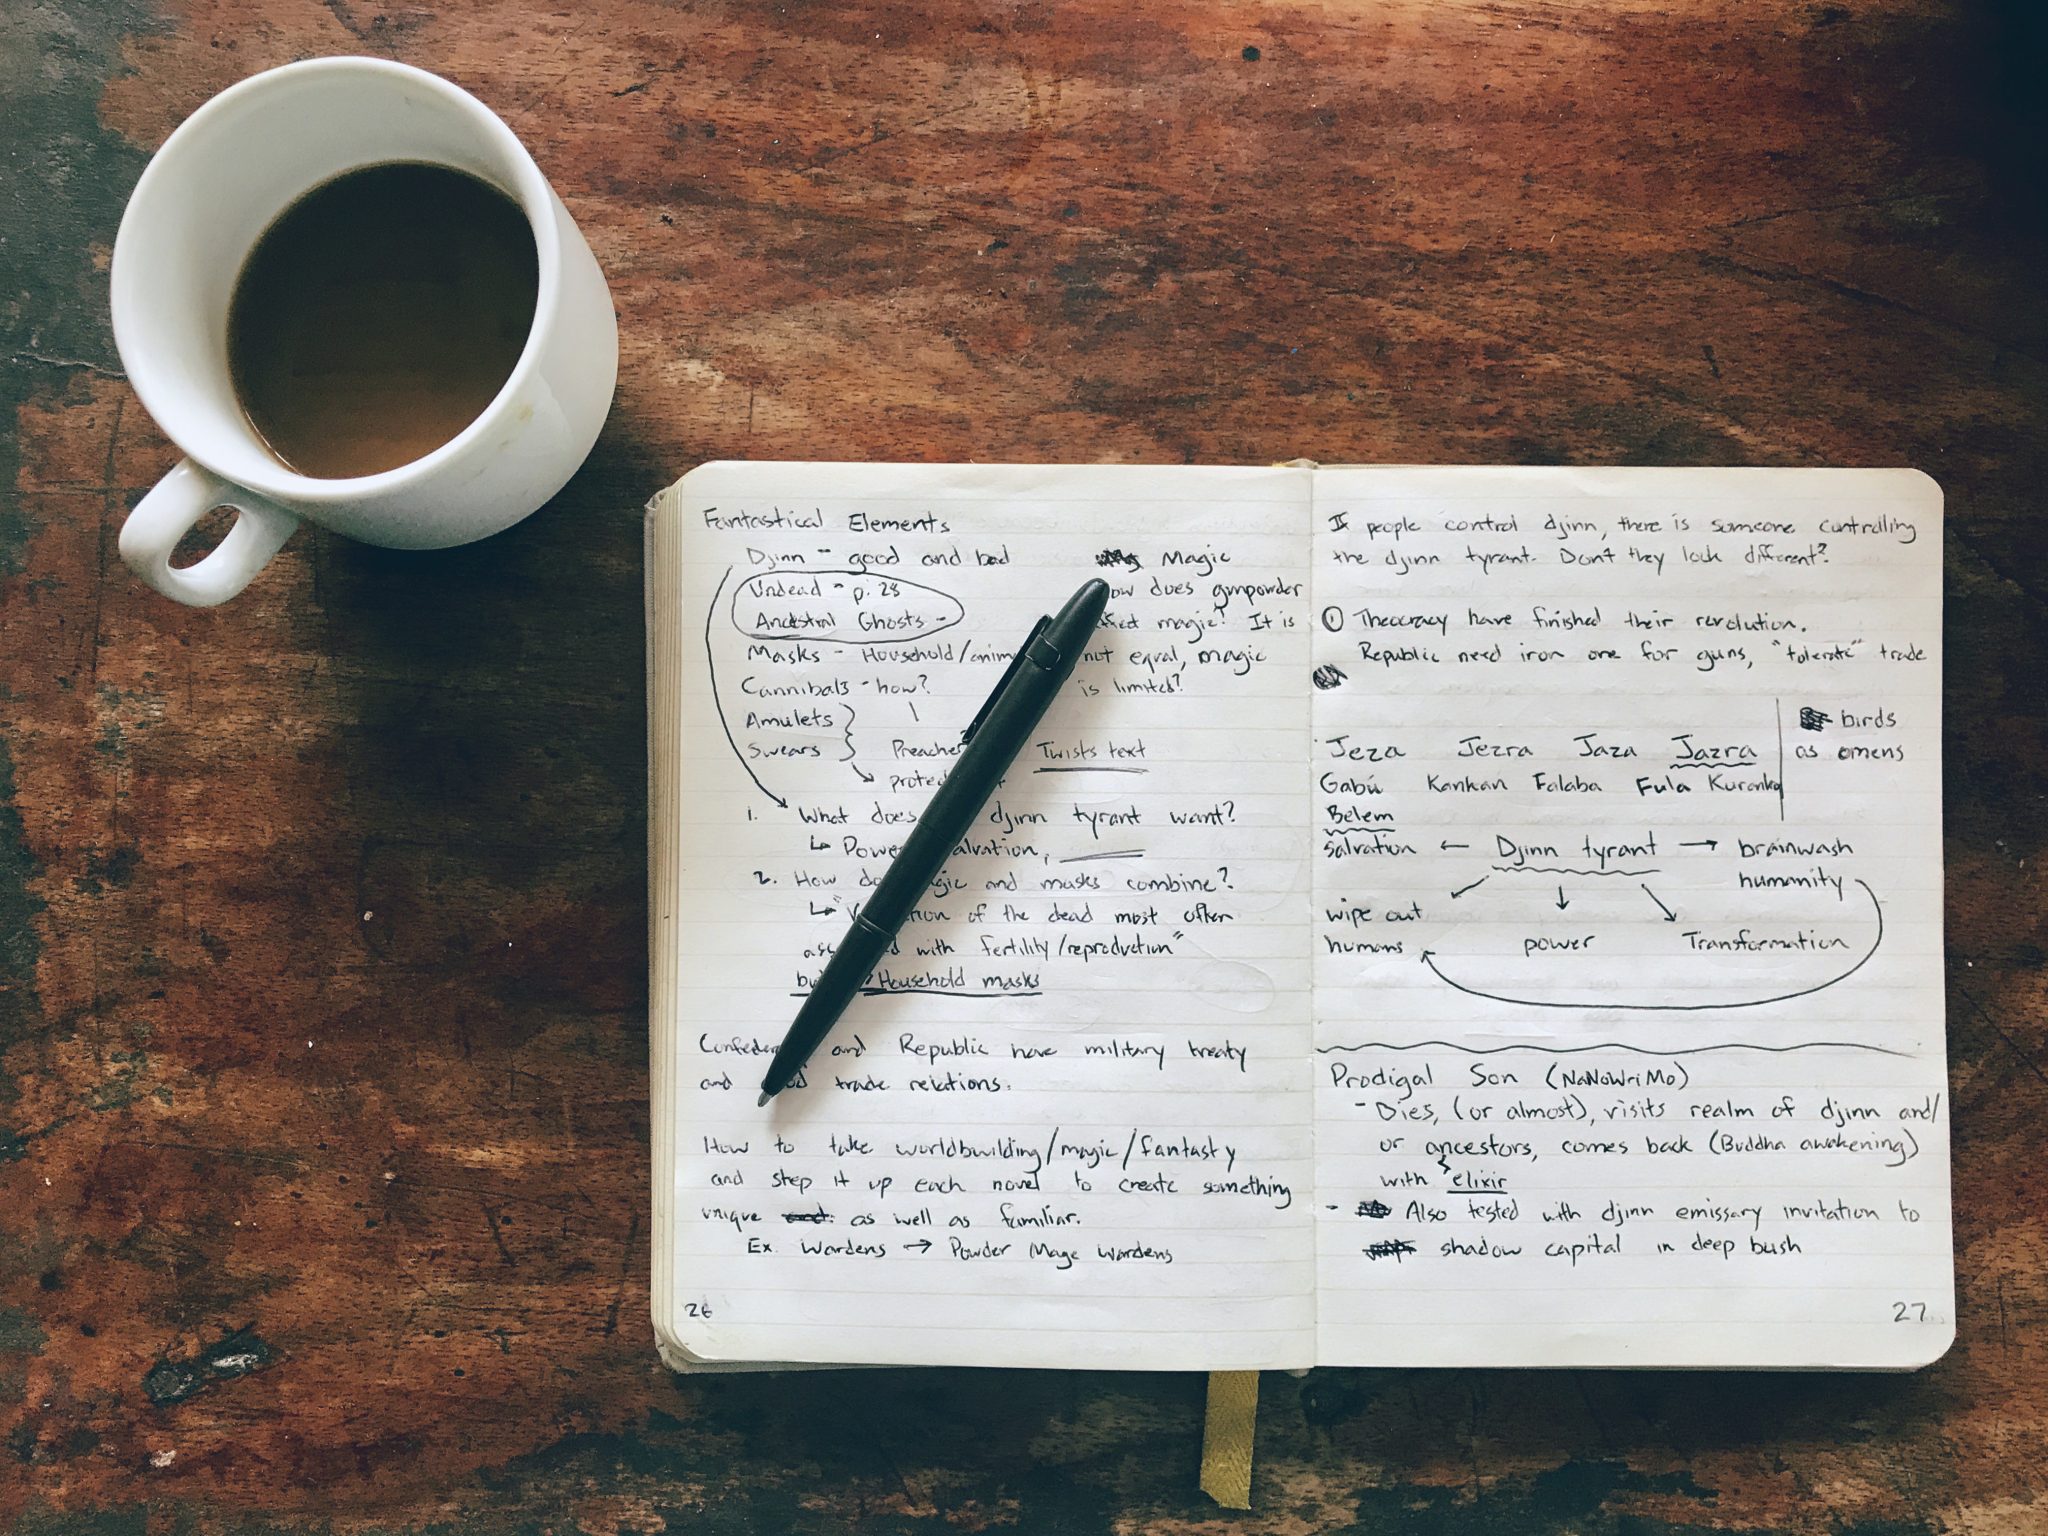 Fantastical Elements
Djinn - good and bad
Undead - p. 28
Ancestral Ghosts -
Masks - Household/anim
Cannibals - how?
Amulets
Swears
Preacher
Twists text
Magic
does gunpowder
magic? It is
not equal, magic
is limited?
1. What does djinn tyrant want?
↳ Power salvation,
2. How do and masks combine?
↳ " of the dead most often
with fertility/reproduction"
Household masks
and Republic have military treaty
and trade relations.
How to take worldbuilding/magic/fantasty
and step it up each novel to create something
unique as well as familiar.
Ex. Wardens → Powder Mage Wardens
26
If people control djinn, there is someone controlling
the djinn tyrant. Don't they look different?
① Theocracy have finished their revolution.
Republic need iron ore for guns, "tolerate" trade
birds
as omens
Jeza Jezra Jaza Jazra
Gabú Kankan Falaba Fula Kuranko
Belem
salvation ← Djinn tyrant → brainwash
humanity
wipe out
humans power Transformation
Prodigal Son (NaNoWriMo)
- Dies, (or almost), visits realm of djinn and/
or ancestors, comes back (Buddha awakening)
with elixir
- Also tested with djinn emissary invitation to
shadow capital in deep bush
27